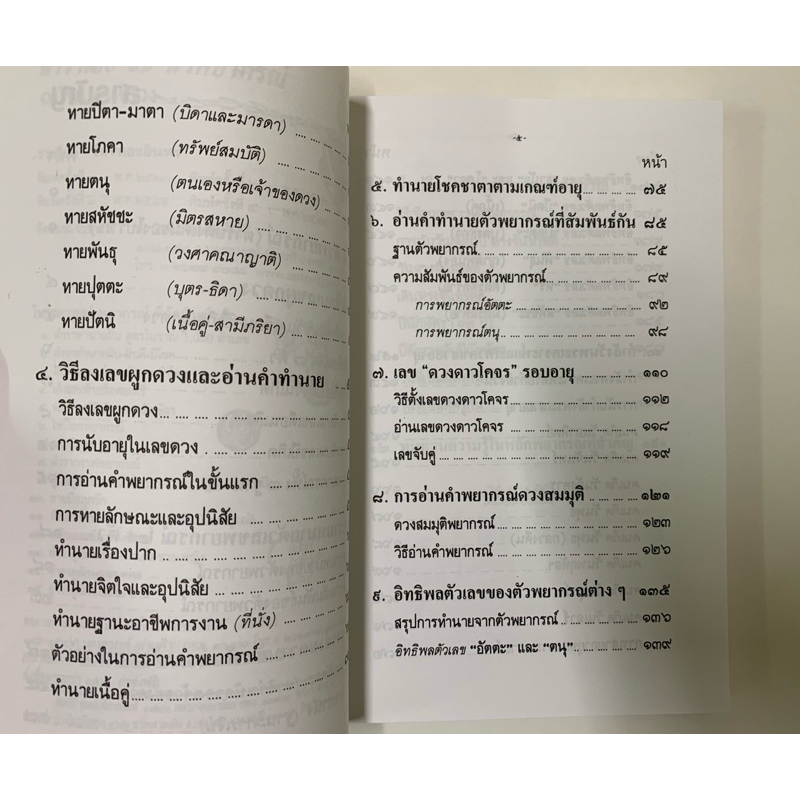 ทายปิตา-มาตา (บิดาและมารดา)
ทายโภคา (ทรัพย์สมบัติ)
ทายตนุ (ตนเองหรือเจ้าของดวง)
ทายสหัชชะ (มิตรสหาย)
ทายพันธุ (วงศาคณาญาติ)
ทายปุตตะ (บุตร-ธิดา)
ทายปัตนิ (เนื้อคู่-สามีภริยา)
๔. วิธีลงเลขผูกดวงและอ่านคำทำนาย
วิธีลงเลขผูกดวง
การนับอายุในเลขดวง
การอ่านคำพยากรณ์ในขั้นแรก
การทายลักษณะและอุปนิสัย
ทำนายเรื่องปาก
ทำนายจิตใจและอุปนิสัย
ทำนายฐานะอาชีพการงาน (ที่นั่ง)
ตัวอย่างในการอ่านคำพยากรณ์
ทำนายเนื้อคู่
-๕-
หน้า
๕. ทำนายโชคชาตาตามเกณฑ์อายุ ๗๕
๖. อ่านคำทำนายตัวพยากรณ์ที่สัมพันธ์กัน ๘๕
ฐานตัวพยากรณ์ ๘๕
ความสัมพันธ์ของตัวพยากรณ์ ๘๙
การพยากรณ์อัตตะ ๙๒
การพยากรณ์ตนุ ๙๘
๗. เลข “ดวงดาวโคจร” รอบอายุ ๑๑๐
วิธีตั้งเลขดวงดาวโคจร ๑๑๒
อ่านเลขดวงดาวโคจร ๑๑๘
เลขจับคู่ ๑๑๙
๘. การอ่านคำพยากรณ์ดวงสมมุติ ๑๒๑
ดวงสมมุติพยากรณ์ ๑๒๓
วิธีอ่านคำพยากรณ์ ๑๒๖
๙. อิทธิพลตัวเลขของตัวพยากรณ์ต่าง ๆ ๑๓๕
สรุปการทำนายจากตัวพยากรณ์ ๑๓๖
อิทธิพลตัวเลข “อัตตะ” และ “ตนุ” ๑๓๙